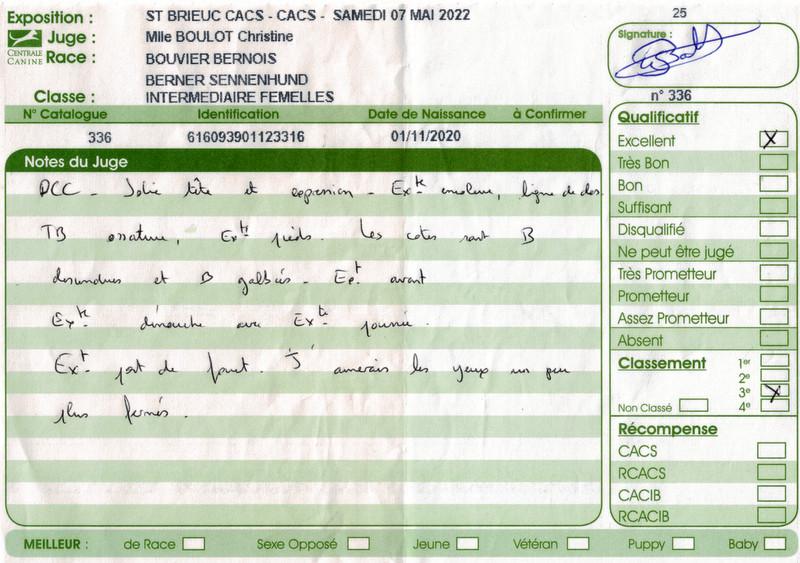 Exposition : ST BRIEUC CACS - CACS - SAMEDI 07 MAI 2022
CENTRALE CANINE
Juge : Mlle BOULOT Christine
Race : BOUVIER BERNOIS
BERNER SENNENHUND
Classe : INTERMEDIAIRE FEMELLES
25
Signature :
n° 336
N° Catalogue Identification Date de Naissance à Confirmer
336 616093901123316 01/11/2020
Notes du Juge
DCC - Jolie tête et expression - Exte encolure, ligne de dos
TB ossature, Exts pieds. Les cotes sont B
descendues et B galbées. Ext avant
Exte démarche avec Exte poussée.
Ext port de fouet. J'aimerais les yeux un peu
plus fermés.
Qualificatif
Excellent X
Très Bon
Bon
Suffisant
Disqualifié
Ne peut être jugé
Très Prometteur
Prometteur
Assez Prometteur
Absent
Classement 1er
2e
3e
Non Classé 4e X
Récompense
CACS
RCACS
CACIB
RCACIB
MEILLEUR : de Race Sexe Opposé Jeune Vétéran Puppy Baby